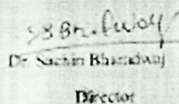 Dr. Sachin Bharadwaj
Director